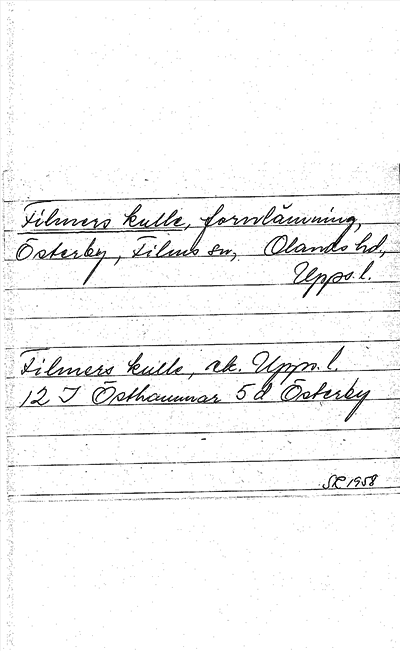 Filmers kulle, fornlämning,
Österby, Films sn, Olands hd,
Upps. l.
Filmers kulle, ek. Upps. l.
12 I Östhammar 5 d Österby
SR 1958